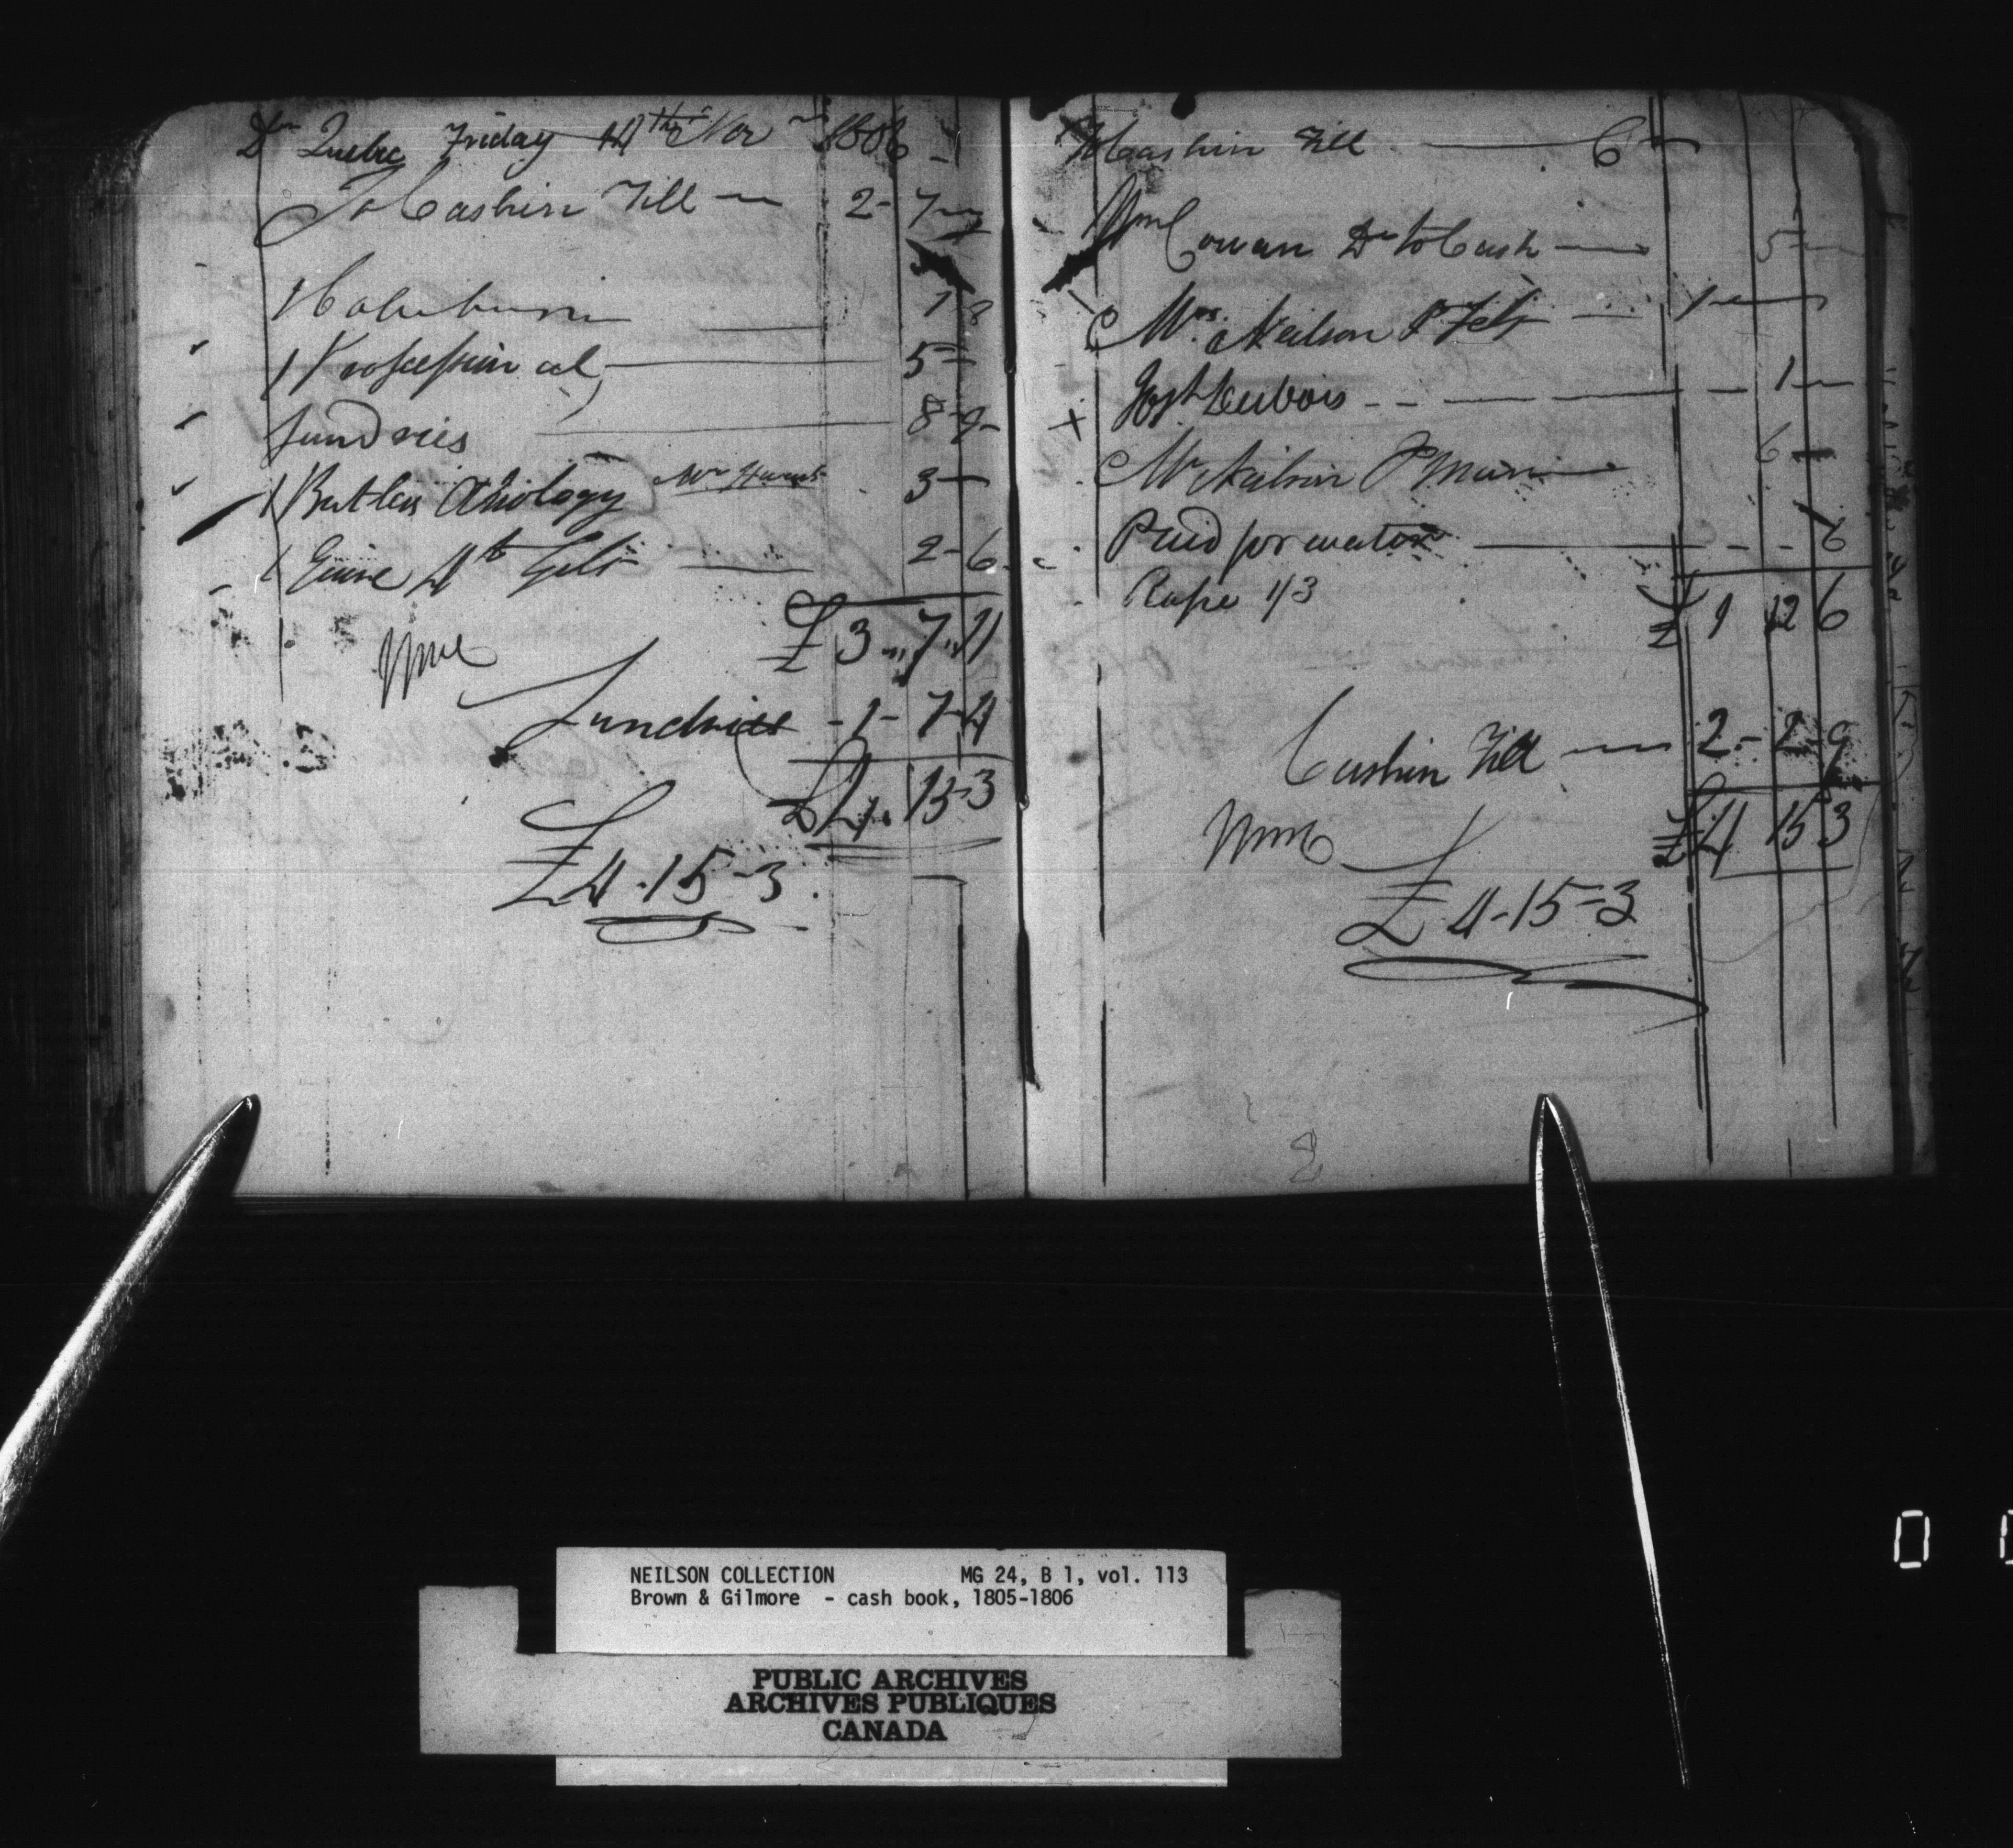 Dr Quebec Friday 14th Nov 1806
To Cash in Till 2-7
1 8
1 Processional 5
Sundries 8-9
1 Butlers Mr 3
1 4th Gilt 2-6
£3 7 11
Wm C
Sundries 1-7-4
£4 15-3
£4-15-3
Cash in Till 6
Wm Cowan Dr to Cash 5
Mrs. Neilson P 1
Jos Dubois 1
Mr Neilson P 6
Paid for water 6
Rope 1/3
£1 12 6
Cash in Till 2-2-9
Wm C
£4 15 3
£4-15-3
NEILSON COLLECTION MG 24, B 1, vol. 113
Brown & Gilmore - cash book, 1805-1806
PUBLIC ARCHIVES
ARCHIVES PUBLIQUES
CANADA